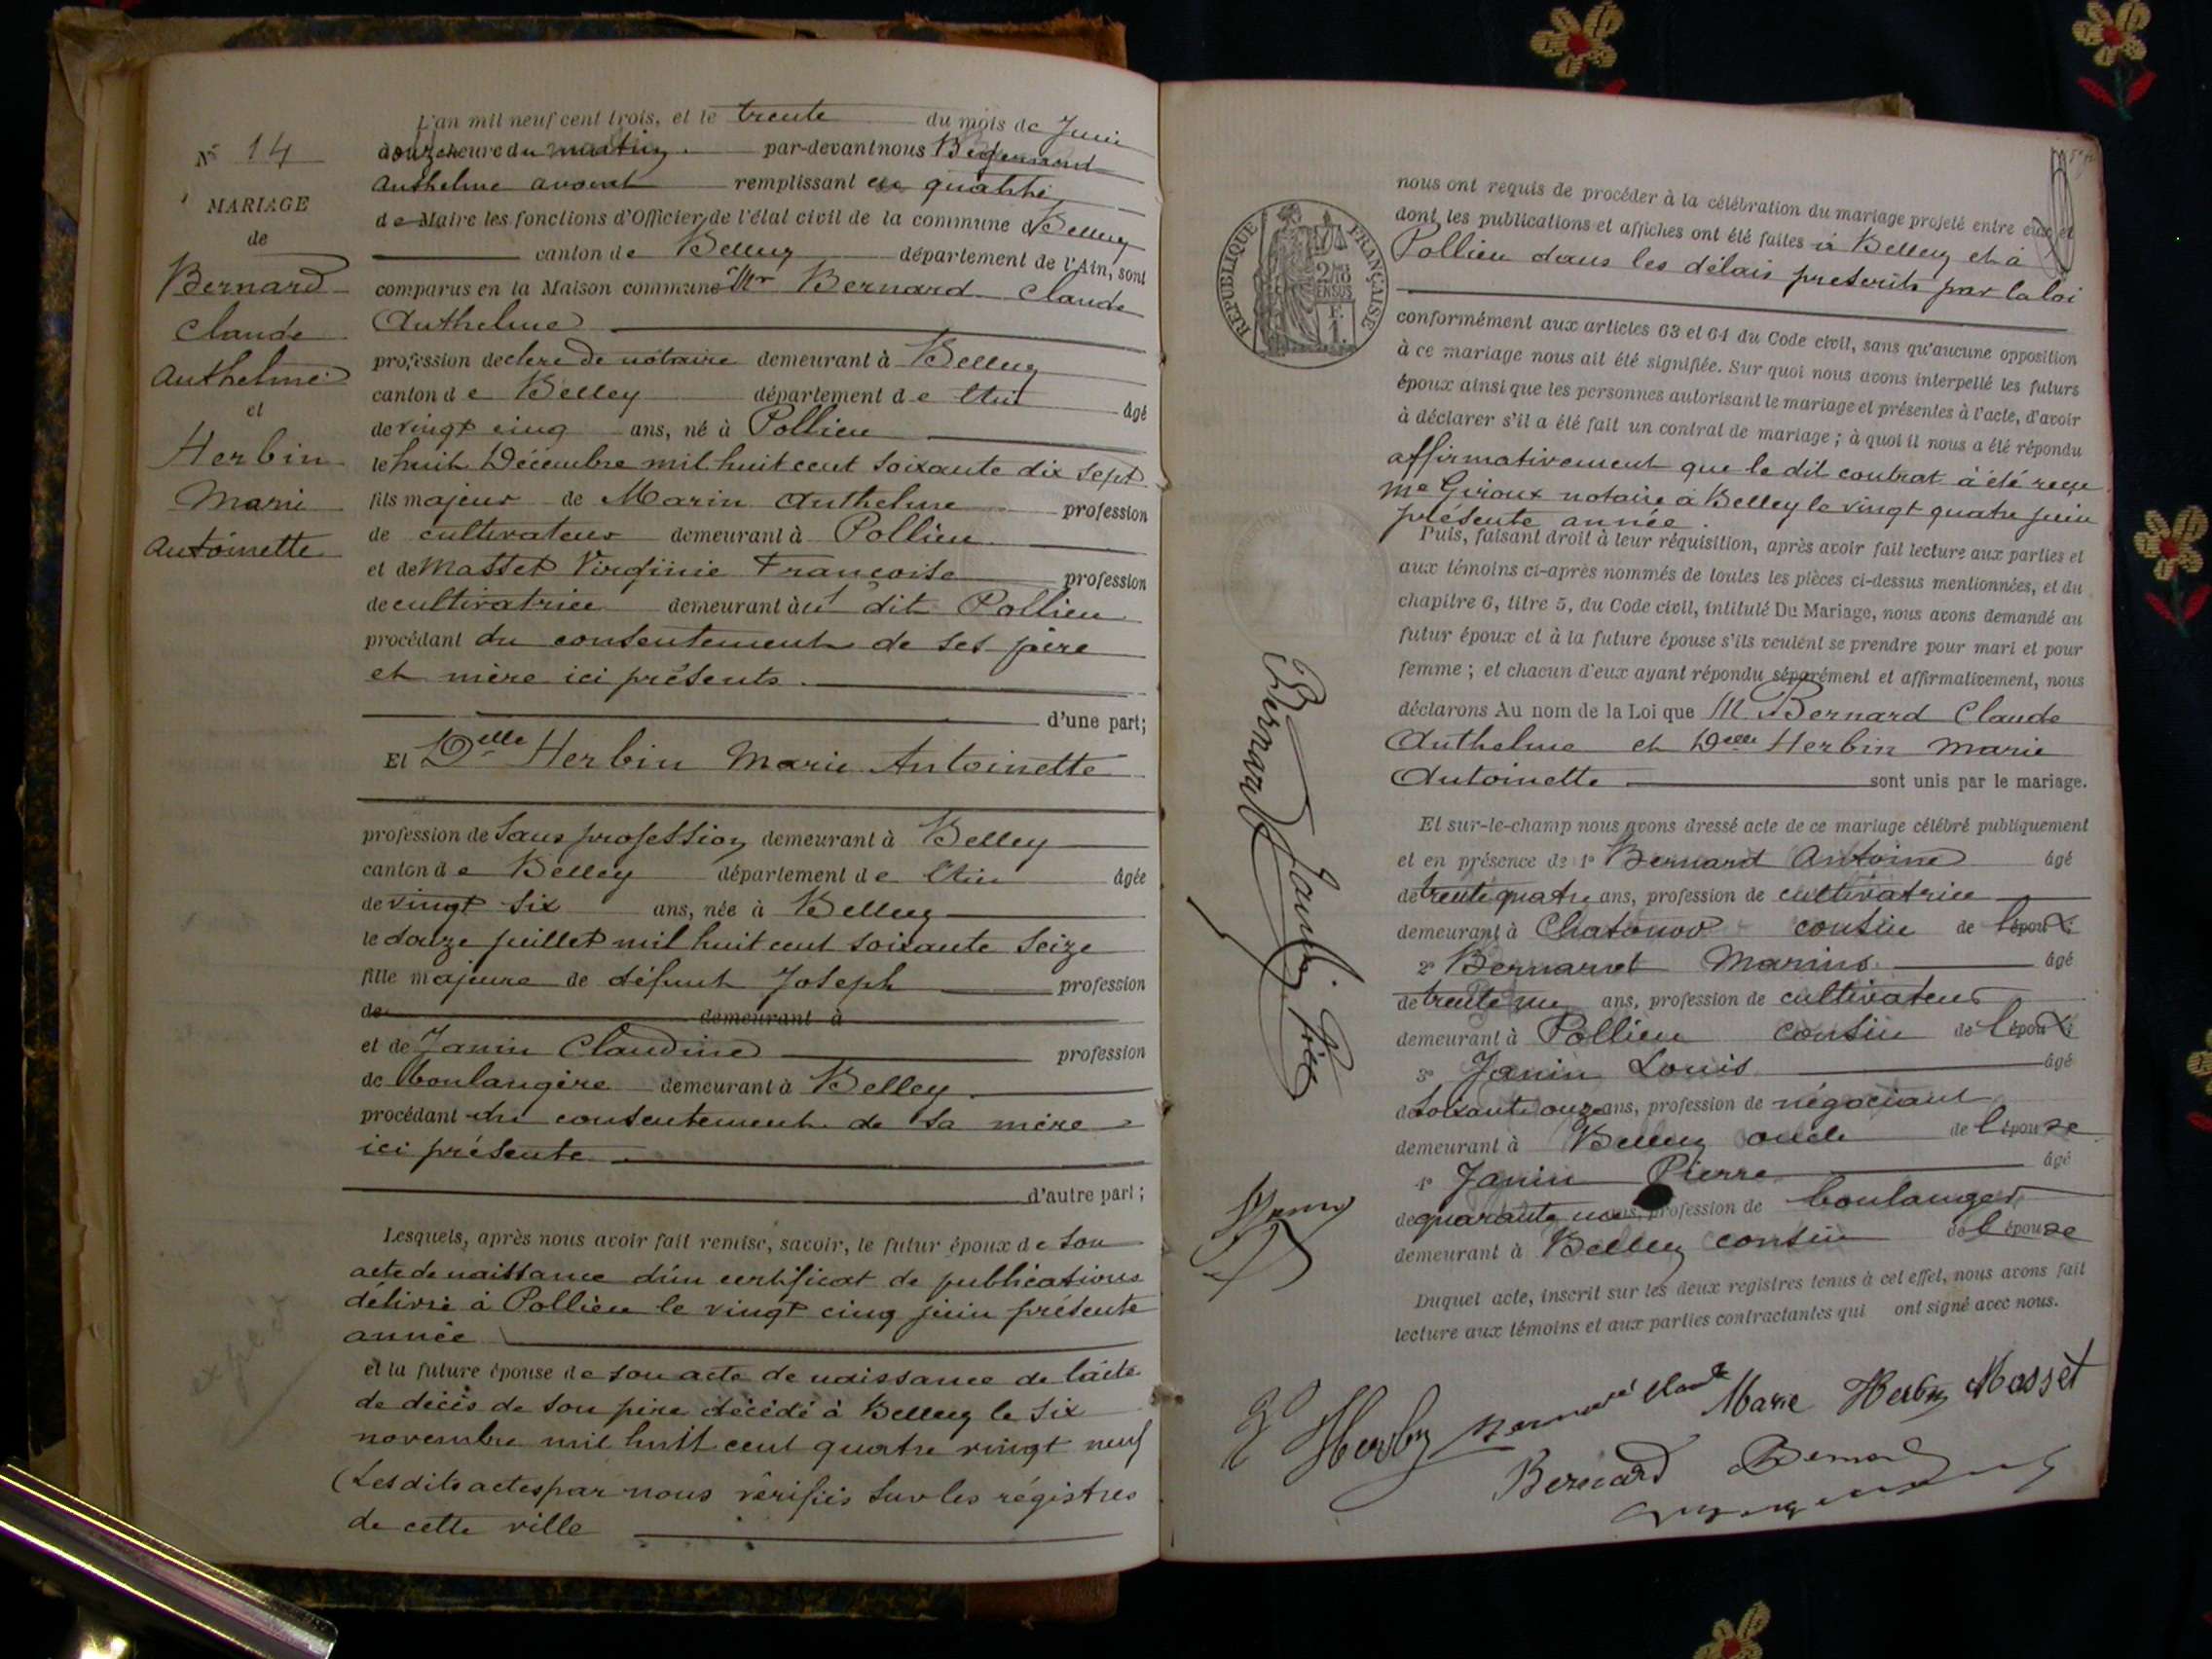 N° 14
MARIAGE
de
Bernard
Claude
Anthelme
et
Herbin
Marie
Antoinette
L'an mil neuf cent trois, et le trente du mois de Juin
à onze heure du matin par-devant nous
Anthelme avocat remplissant en qualité
de Maire les fonctions d'Officier de l'état civil de la commune d Belley
canton de Belley département de l'Ain, sont
comparus en la Maison commune Mr Bernard Claude
Anthelme
profession de clerc de notaire demeurant à Belley
canton de Belley département de l'Ain âgé
de vingt cinq ans, né à Pollieu
le huit Décembre mil huit cent soixante dix sept
fils majeur de Marin Anthelme profession
de cultivateur demeurant à Pollieu
et de Masset Virginie Françoise profession
de cultivatrice demeurant au dit Pollieu
procédant du consentement de ses père
et mère ici présents.
d'une part;
Et Delle Herbin Marie Antoinette
profession de Sans profession demeurant à Belley
canton de Belley département de l'Ain âgée
de vingt six ans, née à Belley
le douze juillet mil huit cent soixante seize
fille majeure de défunt Joseph profession
de demeurant à
et de Janin Claudine profession
de boulangère demeurant à Belley.
procédant du consentement de sa mère
ici présente.
d'autre part;
Lesquels, après nous avoir fait remise, savoir, le futur époux de son
acte de naissance d'un certificat de publications
délivré à Pollieu le vingt cinq juin présente
année
et la future épouse de son acte de naissance de l'acte
de décès de son père décédé à Belley le six
novembre mil huit cent quatre vingt neuf
(Lesdits actes par nous vérifiés sur les régistres
de cette ville
RÉPUBLIQUE FRANÇAISE
nous ont requis de procéder à la célébration du mariage projeté entre eux et
dont les publications et affiches ont été faites à Belley et à
Pollieu dans les délais prescrits par la loi
conformément aux articles 63 et 64 du Code civil, sans qu'aucune opposition
à ce mariage nous ait été signifiée. Sur quoi nous avons interpellé les futurs
époux ainsi que les personnes autorisant le mariage et présentes à l'acte, d'avoir
à déclarer s'il a été fait un contrat de mariage; à quoi il nous a été répondu
affirmativement que le dit contrat a été reçu
Me Giroux notaire à Belley le vingt quatre juin
présente année.
Puis, faisant droit à leur réquisition, après avoir fait lecture aux parties et
aux témoins ci-après nommés de toutes les pièces ci-dessus mentionnées, et du
chapitre 6, titre 5, du Code civil, intitulé Du Mariage, nous avons demandé au
futur époux et à la future épouse s'ils veulent se prendre pour mari et pour
femme; et chacun d'eux ayant répondu séparément et affirmativement, nous
déclarons Au nom de la Loi que M. Bernard Claude
Anthelme et Delle Herbin Marie
Antoinette sont unis par le mariage.
Et sur-le-champ nous avons dressé acte de ce mariage célébré publiquement
et en présence de 1° Bernard Antoine âgé
de trente quatre ans, profession de cultivatrice
demeurant à Chatonod cousin de l'époux
2° Bernard Marius âgé
de trente un ans, profession de cultivateur
demeurant à Pollieu cousin de l'époux
3° Janin Louis âgé
de soixante onze ans, profession de négociant
demeurant à Belley oncle de l'épouse
4° Janin Pierre âgé
de quarante un ans, profession de boulanger
demeurant à Belley cousin de l'épouse
Duquel acte, inscrit sur les deux registres tenus à cet effet, nous avons fait
lecture aux témoins et aux parties contractantes qui ont signé avec nous.
Bernard
Janin
Herbin Bernard Claude Marie Herbin Masset
Bernard Bernard